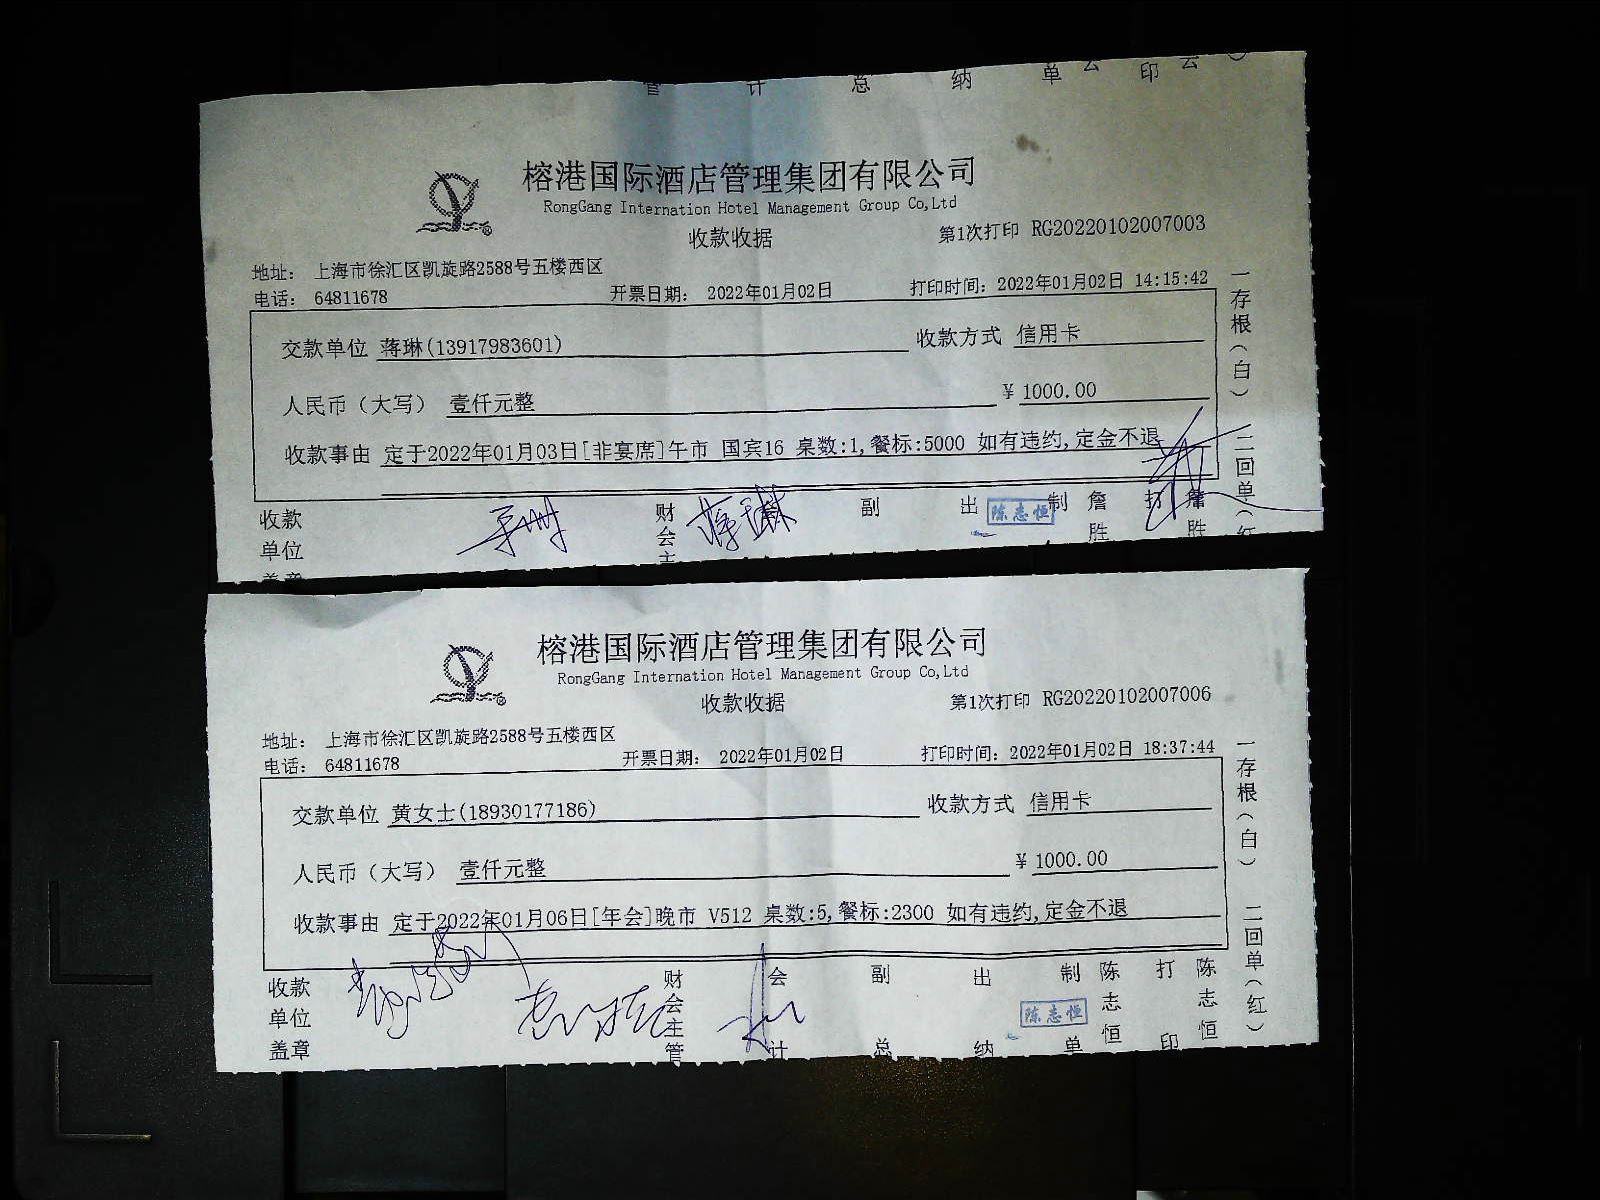 管 计 总 纳 单 云 印 云
榕港国际酒店管理集团有限公司
RongGang Internation Hotel Management Group Co,Ltd
收款收据
第1次打印 RG20220102007003
地址: 上海市徐汇区凯旋路2588号五楼西区
电话: 64811678 开票日期: 2022年01月02日 打印时间: 2022年01月02日 14:15:42
交款单位 蒋琳(13917983601) 收款方式 信用卡
人民币（大写） 壹仟元整 ¥ 1000.00
收款事由 定于2022年01月03日[非宴席]午市 国宾16 桌数:1,餐标:5000 如有违约,定金不退
收款单位盖章 蒋琳 财会主 副 出 陈志恒 制 詹胜 打 詹胜
一存根(白) 二回单(红
榕港国际酒店管理集团有限公司
RongGang Internation Hotel Management Group Co,Ltd
收款收据
第1次打印 RG20220102007006
地址: 上海市徐汇区凯旋路2588号五楼西区
电话: 64811678 开票日期: 2022年01月02日 打印时间: 2022年01月02日 18:37:44
交款单位 黄女士(18930177186) 收款方式 信用卡
人民币（大写） 壹仟元整 ¥ 1000.00
收款事由 定于2022年01月06日[年会]晚市 V512 桌数:5,餐标:2300 如有违约,定金不退
收款单位盖章 财会主管 会计 副总 出纳 陈志恒 制单 陈志恒 打印 陈志恒
一存根(白) 二回单(红)